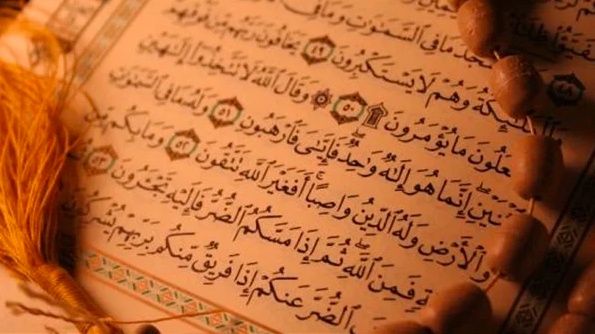 ٤٨
يَسْجُدُ مَا فِى ٱلسَّمَٰوَٰتِ وَمَا فِى
ٱلْمَلَٰٓئِكَةُ وَهُمْ لَا يَسْتَكْبِرُونَ ٤٩ يَخَافُونَ رَبَّهُم مِّن فَوْقِهِمْ
عَلُونَ مَا يُؤْمَرُونَ ۩ ٥٠ ۞ وَقَالَ ٱللَّهُ لَا تَتَّخِذُوٓا۟ إِلَٰهَيْنِ
نَيْنِ إِنَّمَا هُوَ إِلَٰهٌ وَٰحِدٌ فَإِيَّٰىَ فَٱرْهَبُونِ ٥١ وَلَهُۥ مَا فِى ٱلسَّمَٰوَٰتِ
وَٱلْأَرْضِ وَلَهُ ٱلدِّينُ وَاصِبًا أَفَغَيْرَ ٱللَّهِ تَتَّقُونَ ٥٢ وَمَا بِكُم مِّن
ةٍ فَمِنَ ٱللَّهِ ثُمَّ إِذَا مَسَّكُمُ ٱلضُّرُّ فَإِلَيْهِ تَجْـَٔرُونَ ٥٣
ٱلضُّرَّ عَنكُمْ إِذَا فَرِيقٌ مِّنكُم بِرَبِّهِمْ يُشْرِكُونَ